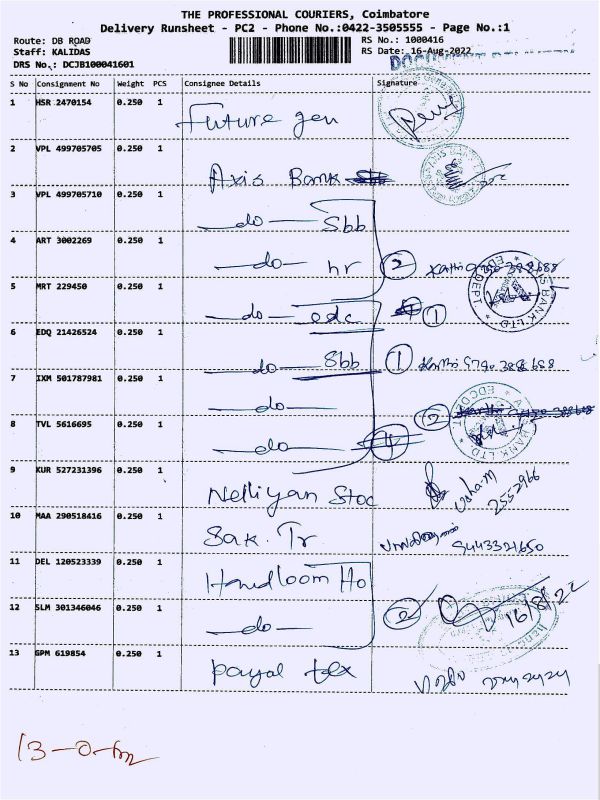 THE PROFESSIONAL COURIERS, Coimbatore
Delivery Runsheet - PC2 - Phone No.:0422-3505555 - Page No.:1
Route: DB ROAD RS No.: 1000416
Staff: KALIDAS RS Date: 16-Aug-2022
DRS No.: DCJB100041601
S No Consignment No Weight PCS Consignee Details Signature
1 HSR 2470154 0.250 1 Future gen
2 VPL 499705705 0.250 1 Axis Bank
3 VPL 499705710 0.250 1 —do— Sbb
4 ART 3002269 0.250 1 —do— hr 2
5 MRT 229450 0.250 1 —do— edc 1
6 EDQ 21426524 0.250 1 —do— Sbb 1
7 IXM 501787981 0.250 1 —do—
8 TVL 5616695 0.250 1 —do— 2
9 KUR 527231396 0.250 1 Nelliyan Stoc Usha.M 2552966
10 MAA 290518416 0.250 1 Sak Tr 9443321650
11 DEL 120523339 0.250 1 Handloom Ho
12 SLM 301346046 0.250 1 —do— 2 16/8/22
13 GPM 619854 0.250 1 Payal tex
13-0-